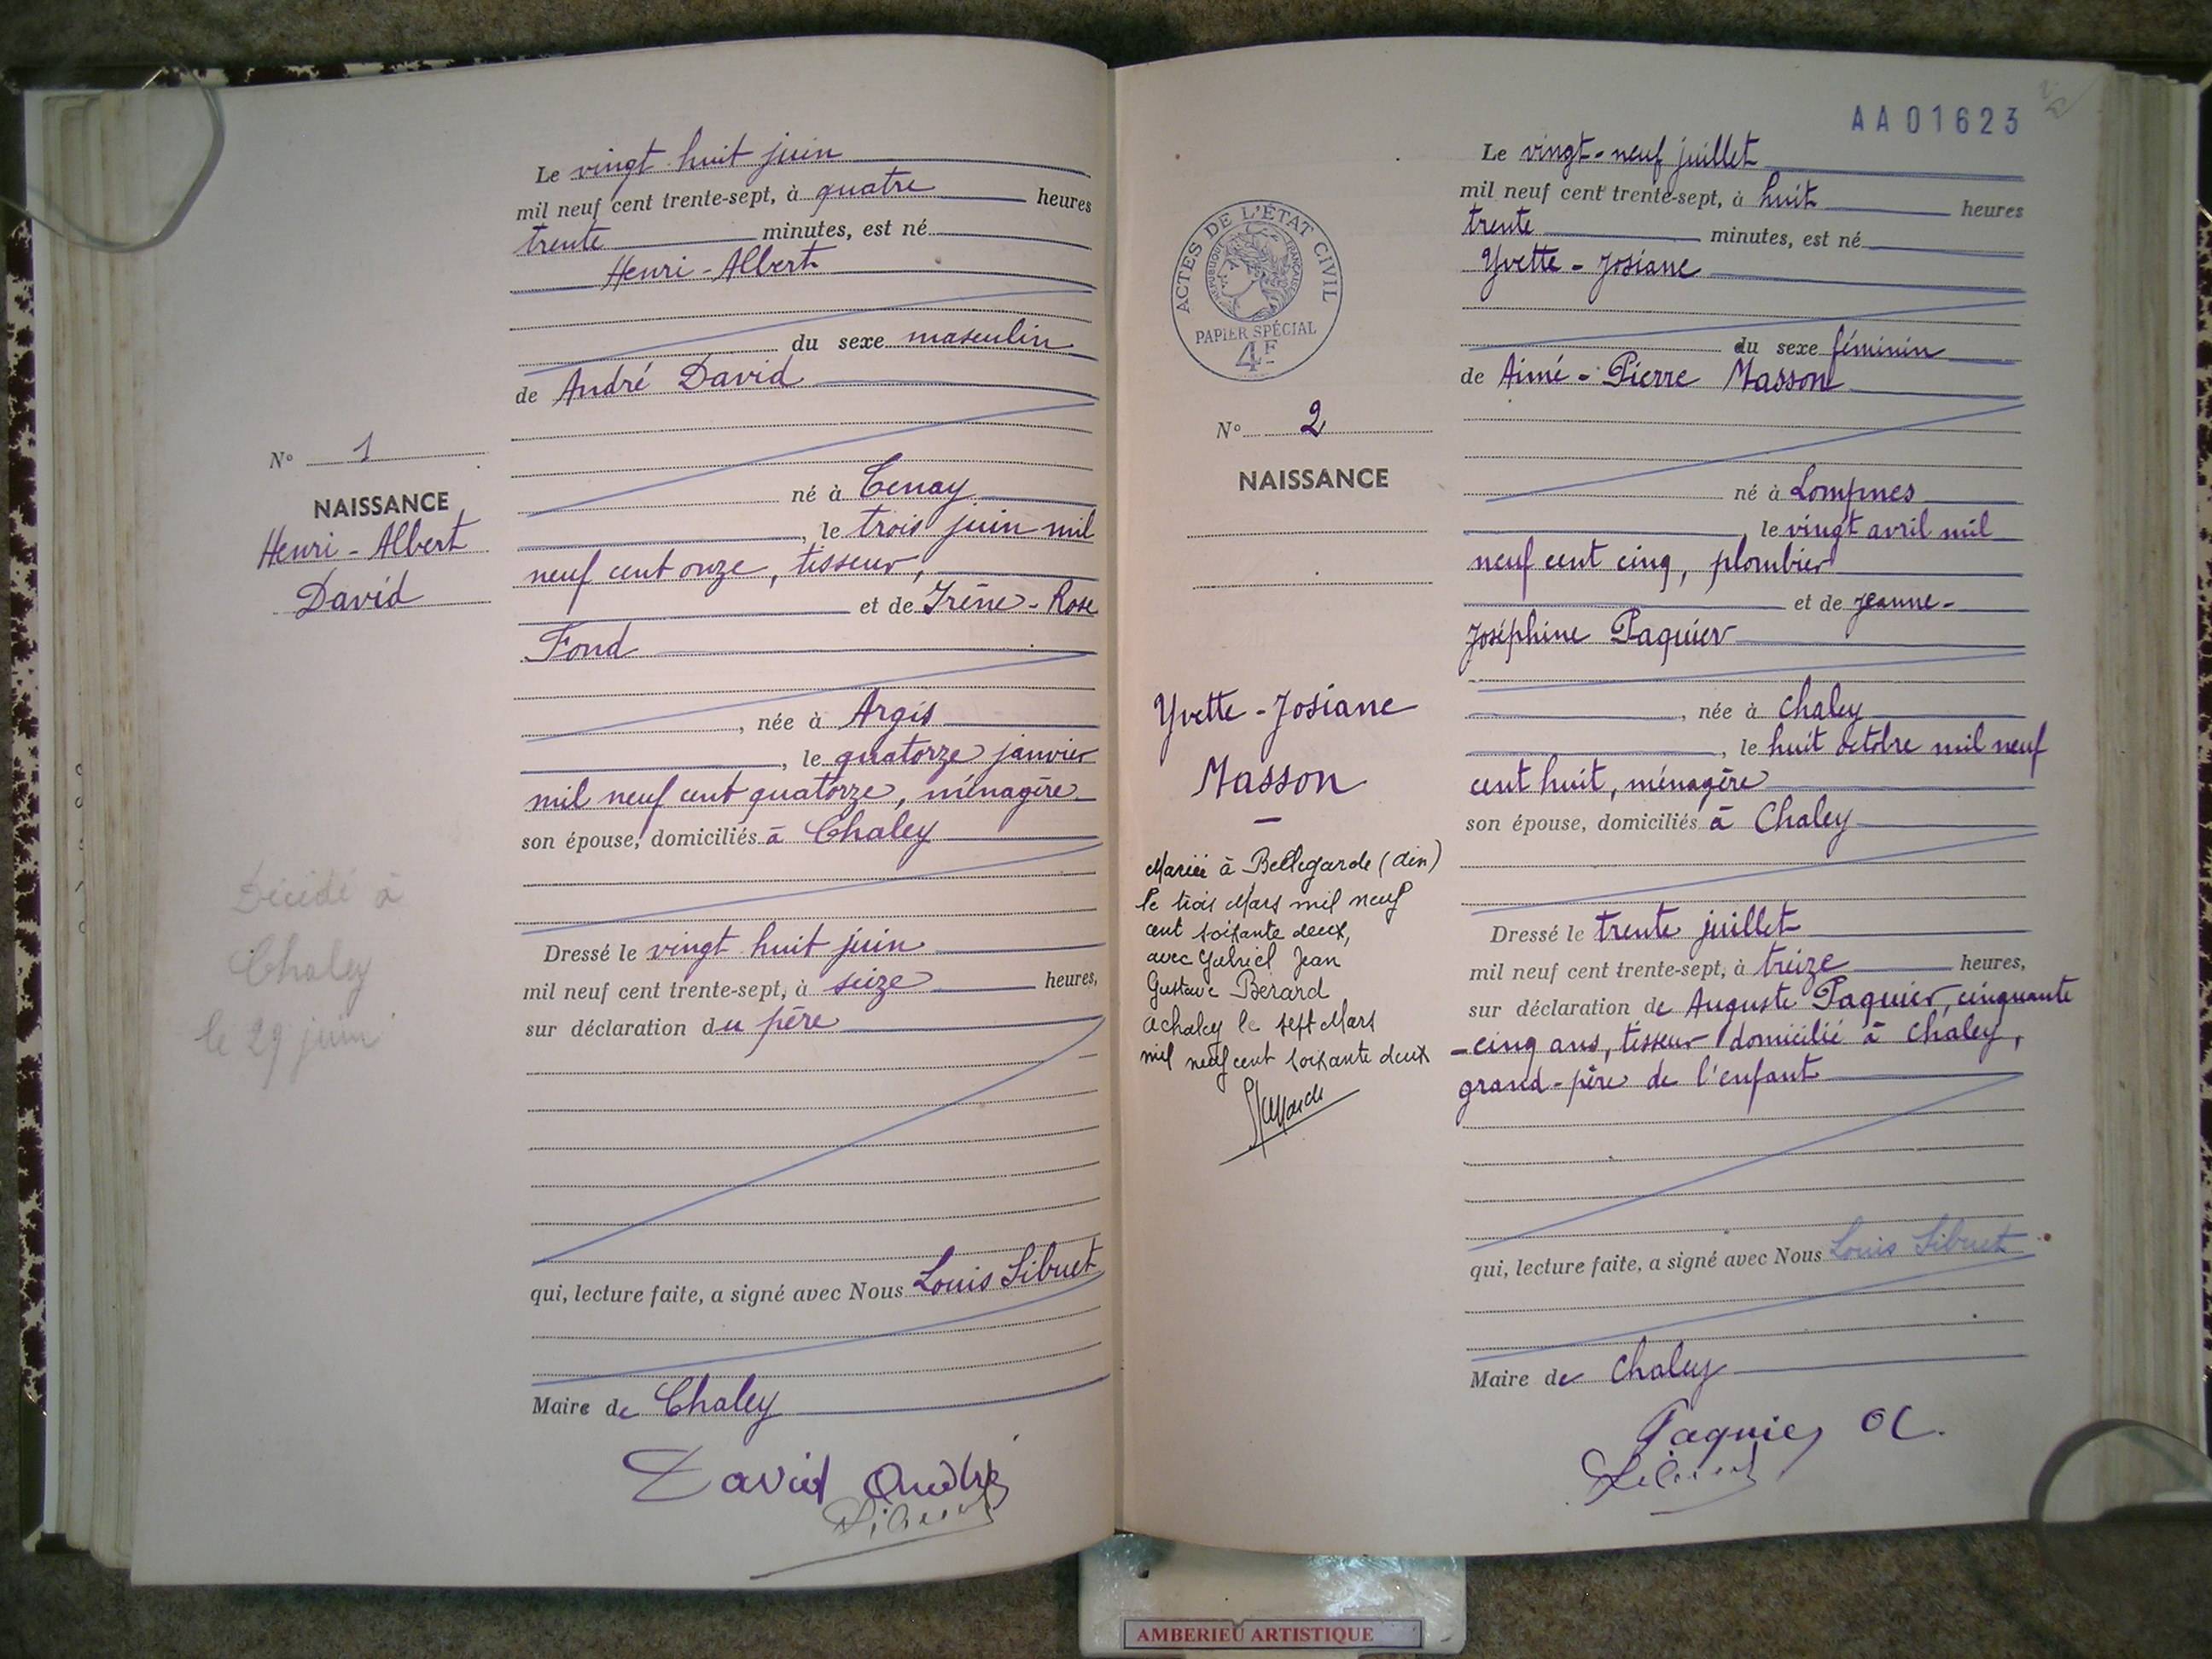 Le vingt huit juin
mil neuf cent trente-sept, à quatre heures
trente minutes, est né
Henri-Albert
du sexe masculin
de André David
né à Tenay
, le trois juin mil
neuf cent onze, tisseur,
et de Irène-Rose
Fond
, née à Argis
, le quatorze janvier
mil neuf cent quatorze, ménagère
son épouse, domiciliés à Chaley
Dressé le vingt huit juin
mil neuf cent trente-sept, à seize heures,
sur déclaration du père
qui, lecture faite, a signé avec Nous Louis Sibuet
Maire de Chaley
David André
Sibuet
N° 1
NAISSANCE
Henri-Albert
David
Décédé à
Chaley
le 29 juin
AA01623
ACTES DE L'ÉTAT CIVIL
RÉPUBLIQUE FRANÇAISE
PAPIER SPÉCIAL
4F
N° 2
NAISSANCE
Yvette-Josiane
Masson
Mariée à Bellegarde (Ain)
le trois Mars mil neuf
cent soixante deux,
avec Gabriel Jean
Gustave Berard
A chaley le sept Mars
mil neuf cent soixante deux
Le vingt-neuf juillet
mil neuf cent trente-sept, à huit heures
trente minutes, est né
Yvette-Josiane
du sexe féminin
de Aimé-Pierre Masson
né à Lompnes
le vingt avril mil
neuf cent cinq, plombier
et de Jeanne-
Joséphine Paquier
, née à Chaley
, le huit octobre mil neuf
cent huit, ménagère
son épouse, domiciliés à Chaley
Dressé le trente juillet
mil neuf cent trente-sept, à treize heures,
sur déclaration de Auguste Paquier, cinquante
-cinq ans, tisseur domicilié à Chaley,
grand-père de l'enfant
qui, lecture faite, a signé avec Nous Louis Sibuet
Maire de Chaley
Paquier
Sibuet
AMBERIEU ARTISTIQUE